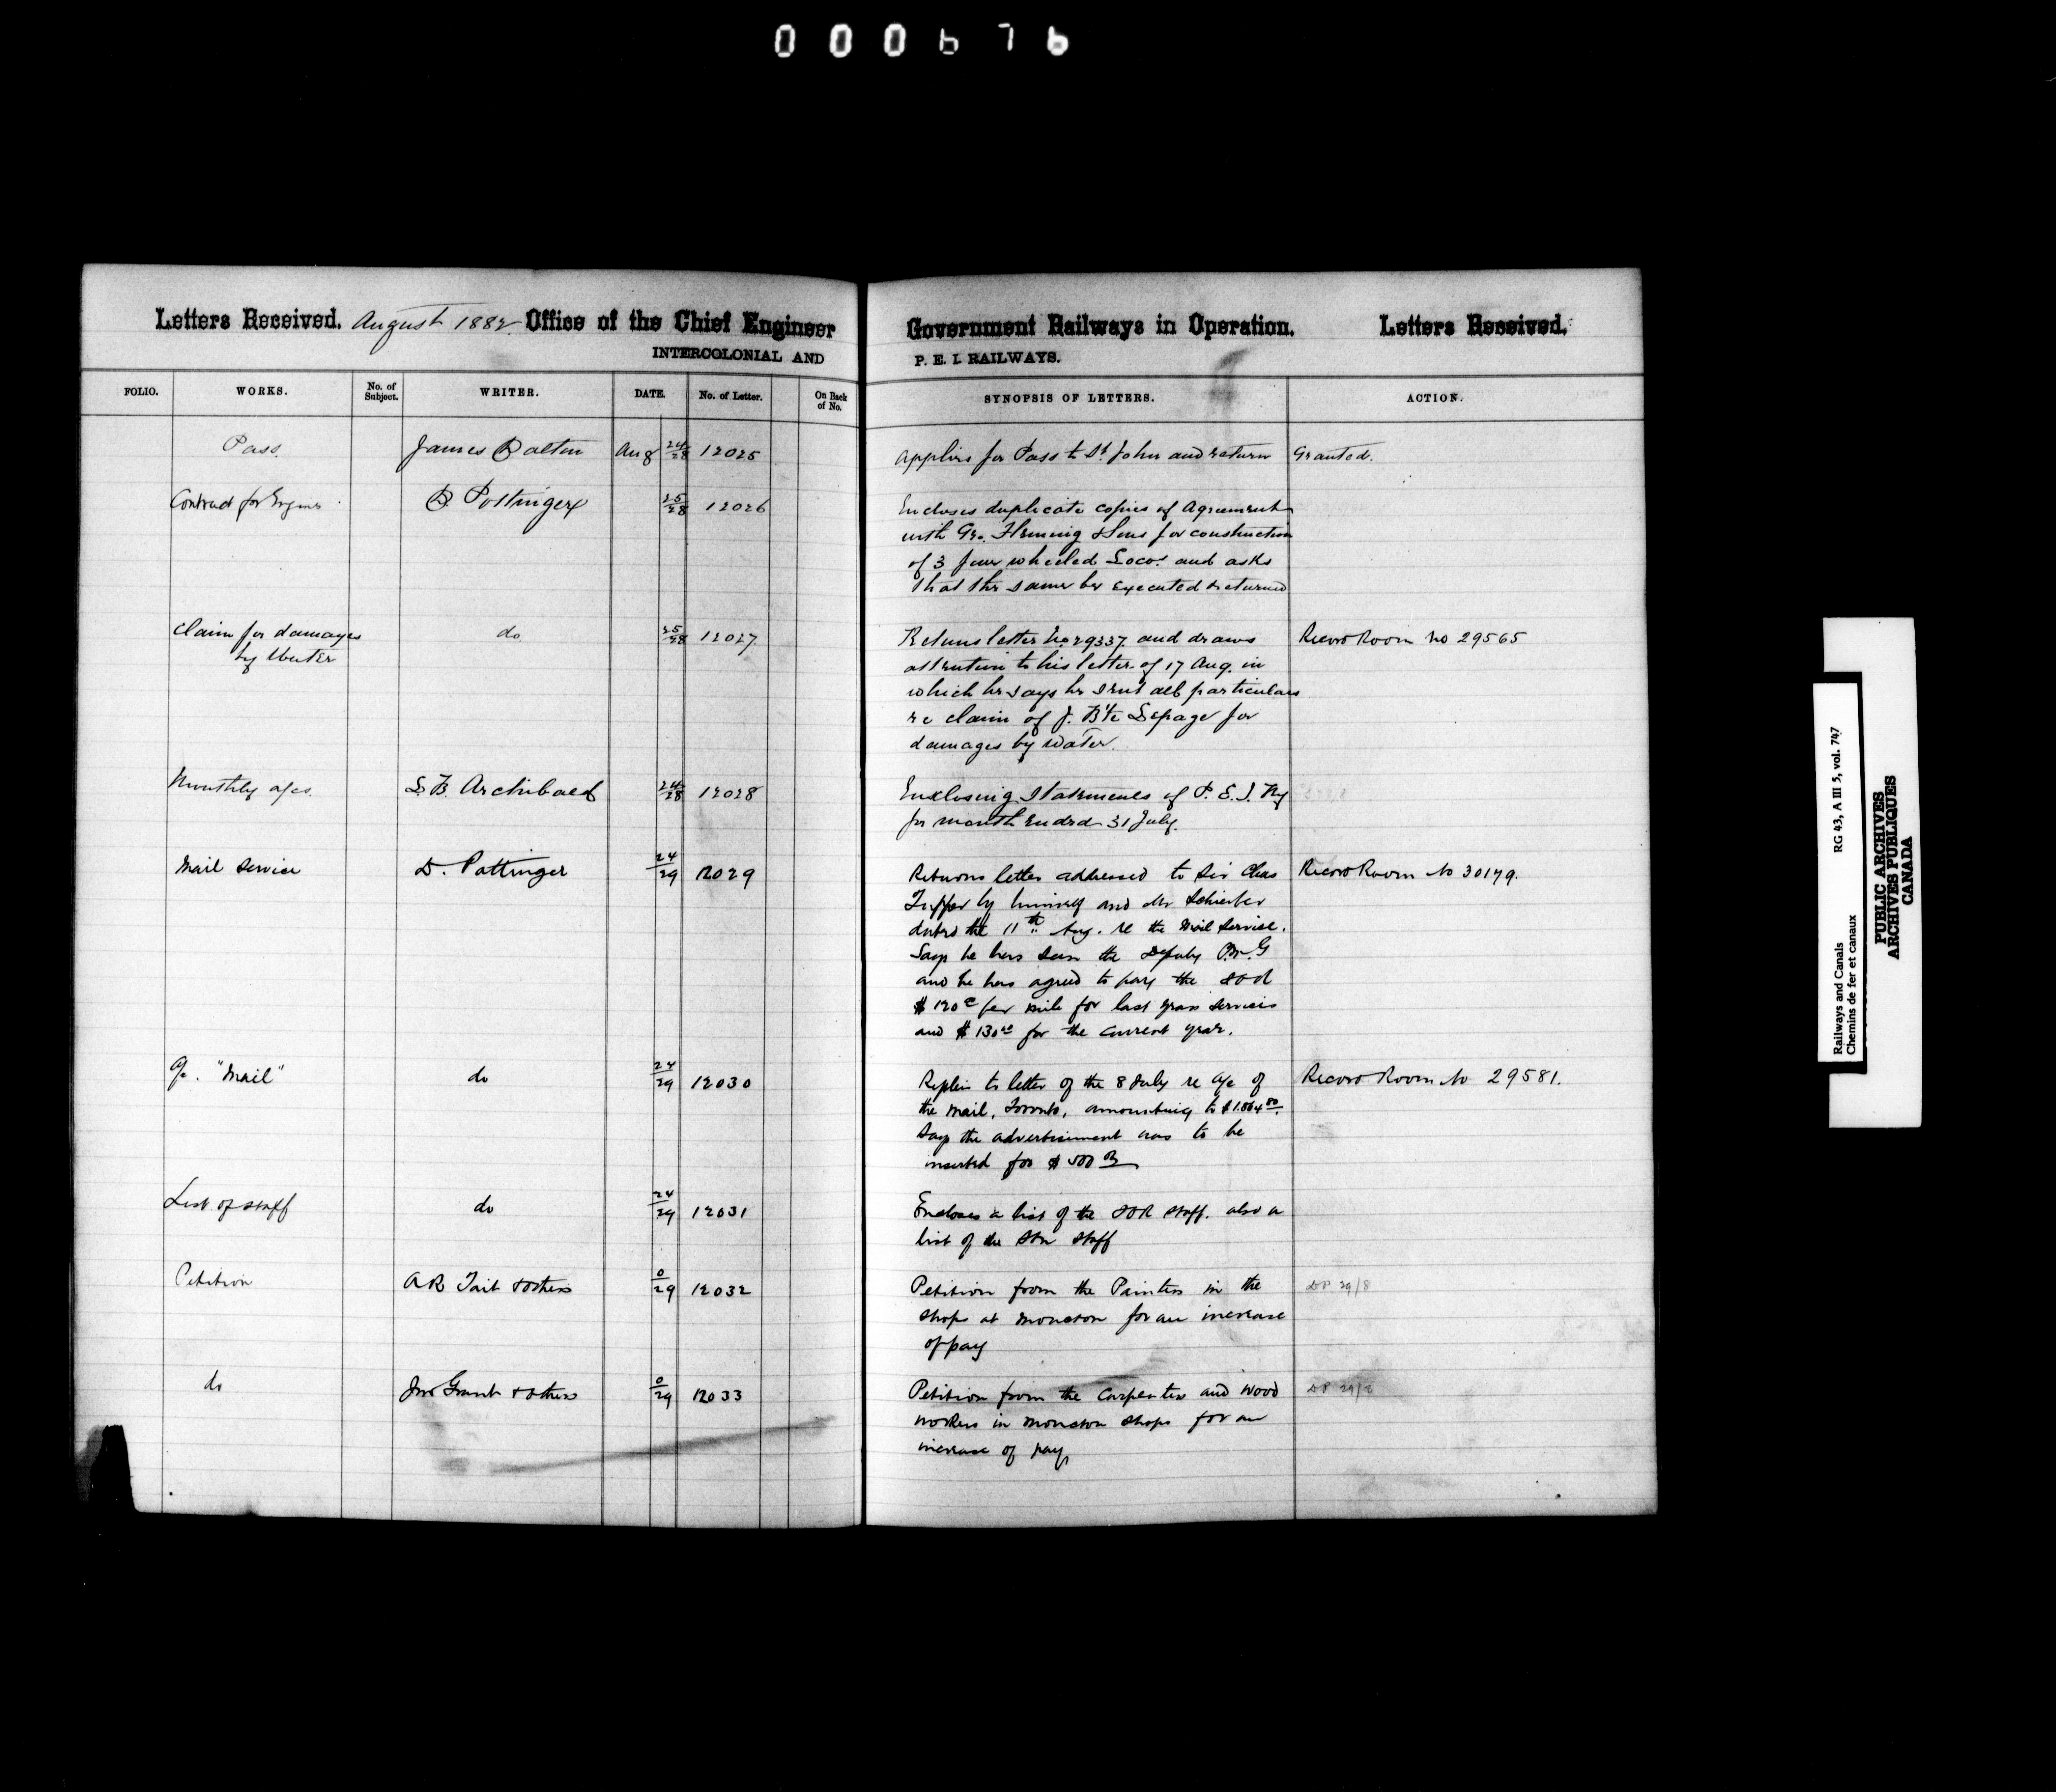 000676
Letters Received. August 1882 Office of the Chief Engineer Government Railways in Operation. Letters Received.
INTERCOLONIAL AND P. E. I. RAILWAYS.
FOLIO. WORKS. No. of Subject. WRITER. DATE. No. of Letter. On Back of No. SYNOPSIS OF LETTERS. ACTION.
Pass. James Dalton Aug 24/28 12025 Applies for Pass to St. John and return Granted.
Contract for Engines D Pottinger 25/28 12026 Encloses duplicate copies of Agreement
with Geo. Fleming & Sons for construction
of 3 four wheeled Locos. and asks
that the same be executed & returned
Claim for damages
by Water do 25/28 12027 Returns letter No 29337 and draws Record Room No 29565
attention to his letter of 17 Aug. in
which he says he sent all particulars
re claim of J. Bte Lepage for
damages by water.
Monthly a/cs. L. B. Archibald 24/28 12028 Enclosing Statements of P. E. I. Ry
for month ended 31 July.
Mail Service D. Pottinger 24/29 12029 Returns letter addressed to Sir Chas Record Room No 30179.
Tupper by himself and Mr Schreiber
dated the 11th Aug. re the Mail Service.
Says he has seen the Deputy P.M.G
and he has agreed to pay the ICR
$ 120 per mile for last years services
and $ 130 for the current year.
a/c. "Mail" do 24/29 12030 Replies to letter of the 8 July re a/c of Record Room No 29581.
the Mail, Toronto, amounting to
Says the advertisement was to be
inserted for $ 500
List of staff do 24/29 12031 Encloses a list of the ICR Staff. also a
list of the Stn Staff
Petition A R Tait & others 0/29 12032 Petition from the Painters in the DP 29/8
shops at Moncton for an increase
of pay
do Jno Grant & others 0/29 12033 Petition from the Carpenters and Wood DP 29/8
workers in Moncton Shops for an
increase of pay
Railways and Canals RG 43, A III 5, vol. 747
Chemins de fer et canaux
PUBLIC ARCHIVES
ARCHIVES PUBLIQUES
CANADA